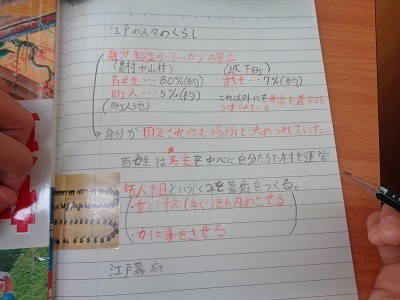 江戸の人々のくらし
身分制度がしっかり
(農村や山村) (城下町)
百姓…80%(約) 武士…7%(約)
町人…5%(約) これ以外にも
→身分が固定され住む場所も決められていた。
百姓は名主を中心に自分たちで村を運営
五人組というしくみを
・重い税(年ぐ)を納めさせる
・力仕事をさせる
江戸幕府